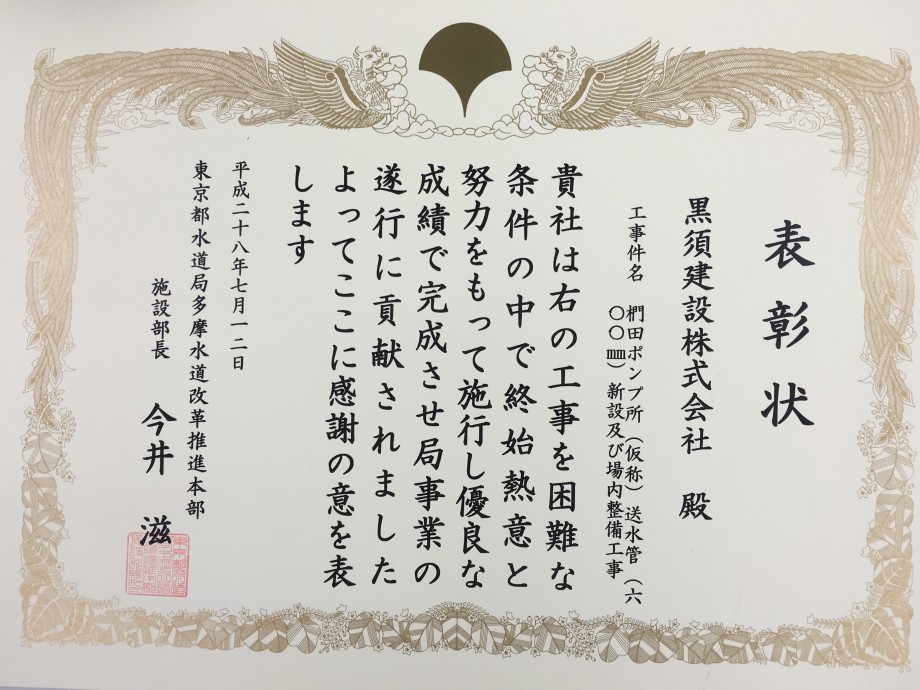 表彰状
黒須建設株式会社 殿
工事件名 椚田ポンプ所（仮称）送水管（六
〇〇㎜）新設及び場内整備工事
貴社は右の工事を困難な
条件の中で終始熱意と
努力をもって施行し優良な
成績で完成させ局事業の
遂行に貢献されました
よってここに感謝の意を表
します
平成二十八年七月一二日
東京都水道局多摩水道改革推進本部
施設部長 今井 滋